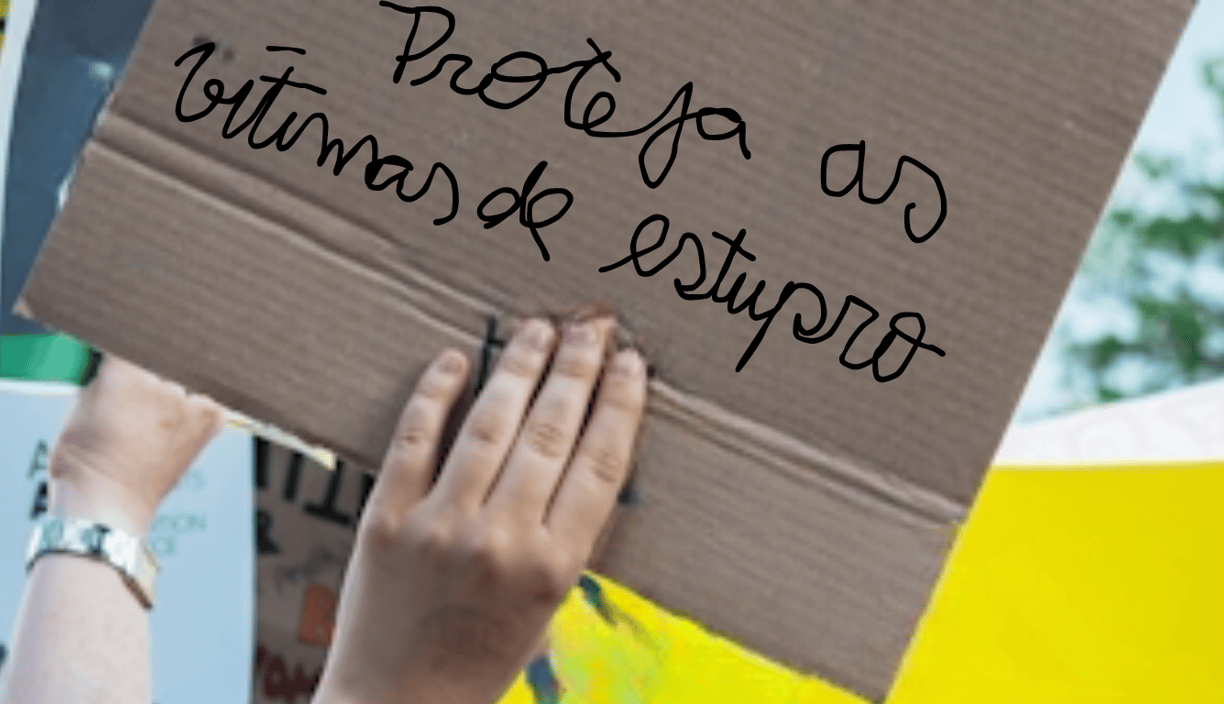 Proteja as
vítimas de estupro